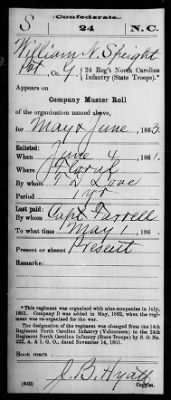 Confederate.
S 24 N.C.
William N. Speight
Pvt, Co. 24 Reg't North Carolina
Infantry (State Troops).*
Appears on
Company Muster Roll
of the organization named above,
for May & June, 1863.
Enlisted:
When June 4, 1861.
Where
By whom
Period 1 yr
Last paid:
By whom Capt. Farrell
To what time May 1, 186
Present or absent Present
Remarks:
*This regiment was organized with nine companies in July,
1861. Company D was added in May, 1862, when the regi-
ment was re-organized for the war.
The designation of the regiment was changed from the 14th
Regiment North Carolina Infantry (Volunteers) to the 24th
Regiment North Carolina Infantry (State Troops) by S. O. No.
222, A. & I. G. O., dated November 14, 1861.
Book mark:
J. B. Hyatt
(642) Copyist.